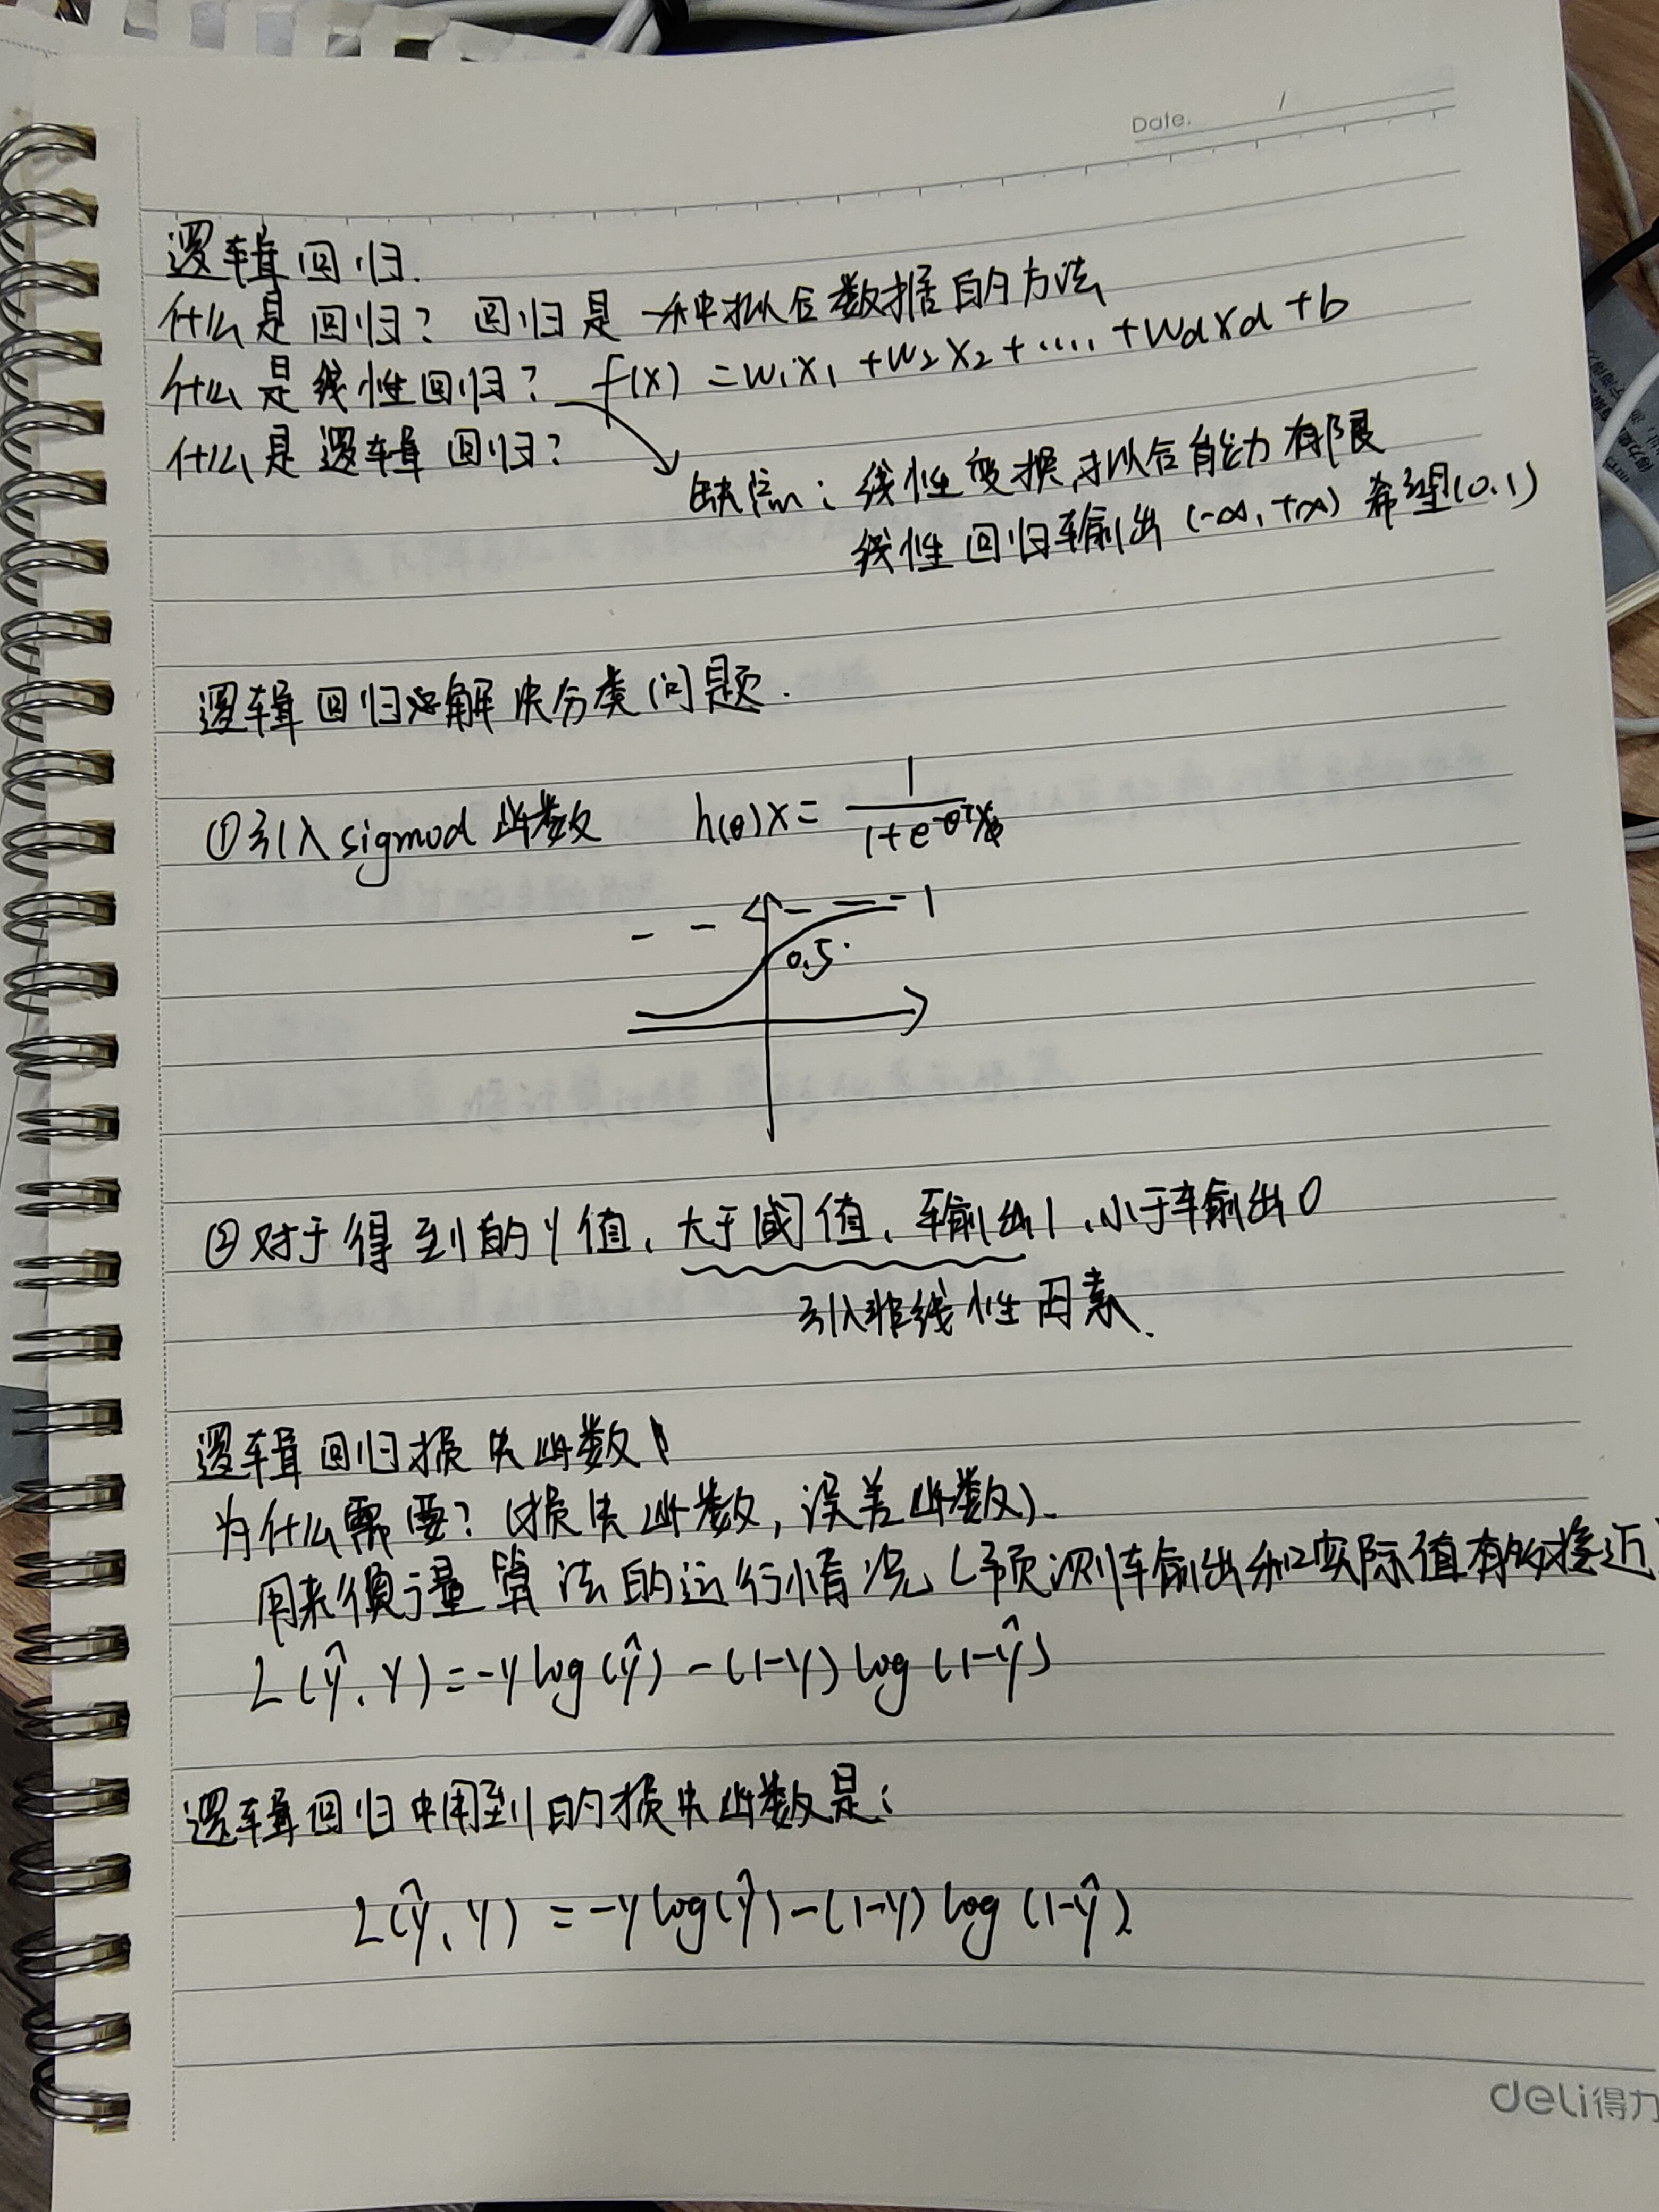 Date. /
逻辑回归.
什么是回归? 回归是一种拟合数据的方法
什么是线性回归? f(x) = w₁x₁ + w₂x₂ + .... + wdxd + b
什么是逻辑回归?
缺陷: 线性变换,拟合能力有限
线性回归输出 (-∞, +∞) 希望(0.1)
逻辑回归 解决分类问题.
①引入sigmod函数 h(θ)x = 1/(1+e^-θᵀx)
1
0.5
②对于得到的y值, 大于阈值, 输出1, 小于输出0
引入非线性因素.
逻辑回归损失函数
为什么需要? (损失函数, 误差函数).
用来衡量算法的运行情况 (预测输出和实际值有多接近
L(ŷ, y) = -y log(ŷ) - (1-y) log (1-ŷ)
逻辑回归中用到的损失函数是:
L(ŷ, y) = -y log(ŷ) - (1-y) log (1-ŷ)
deli得力